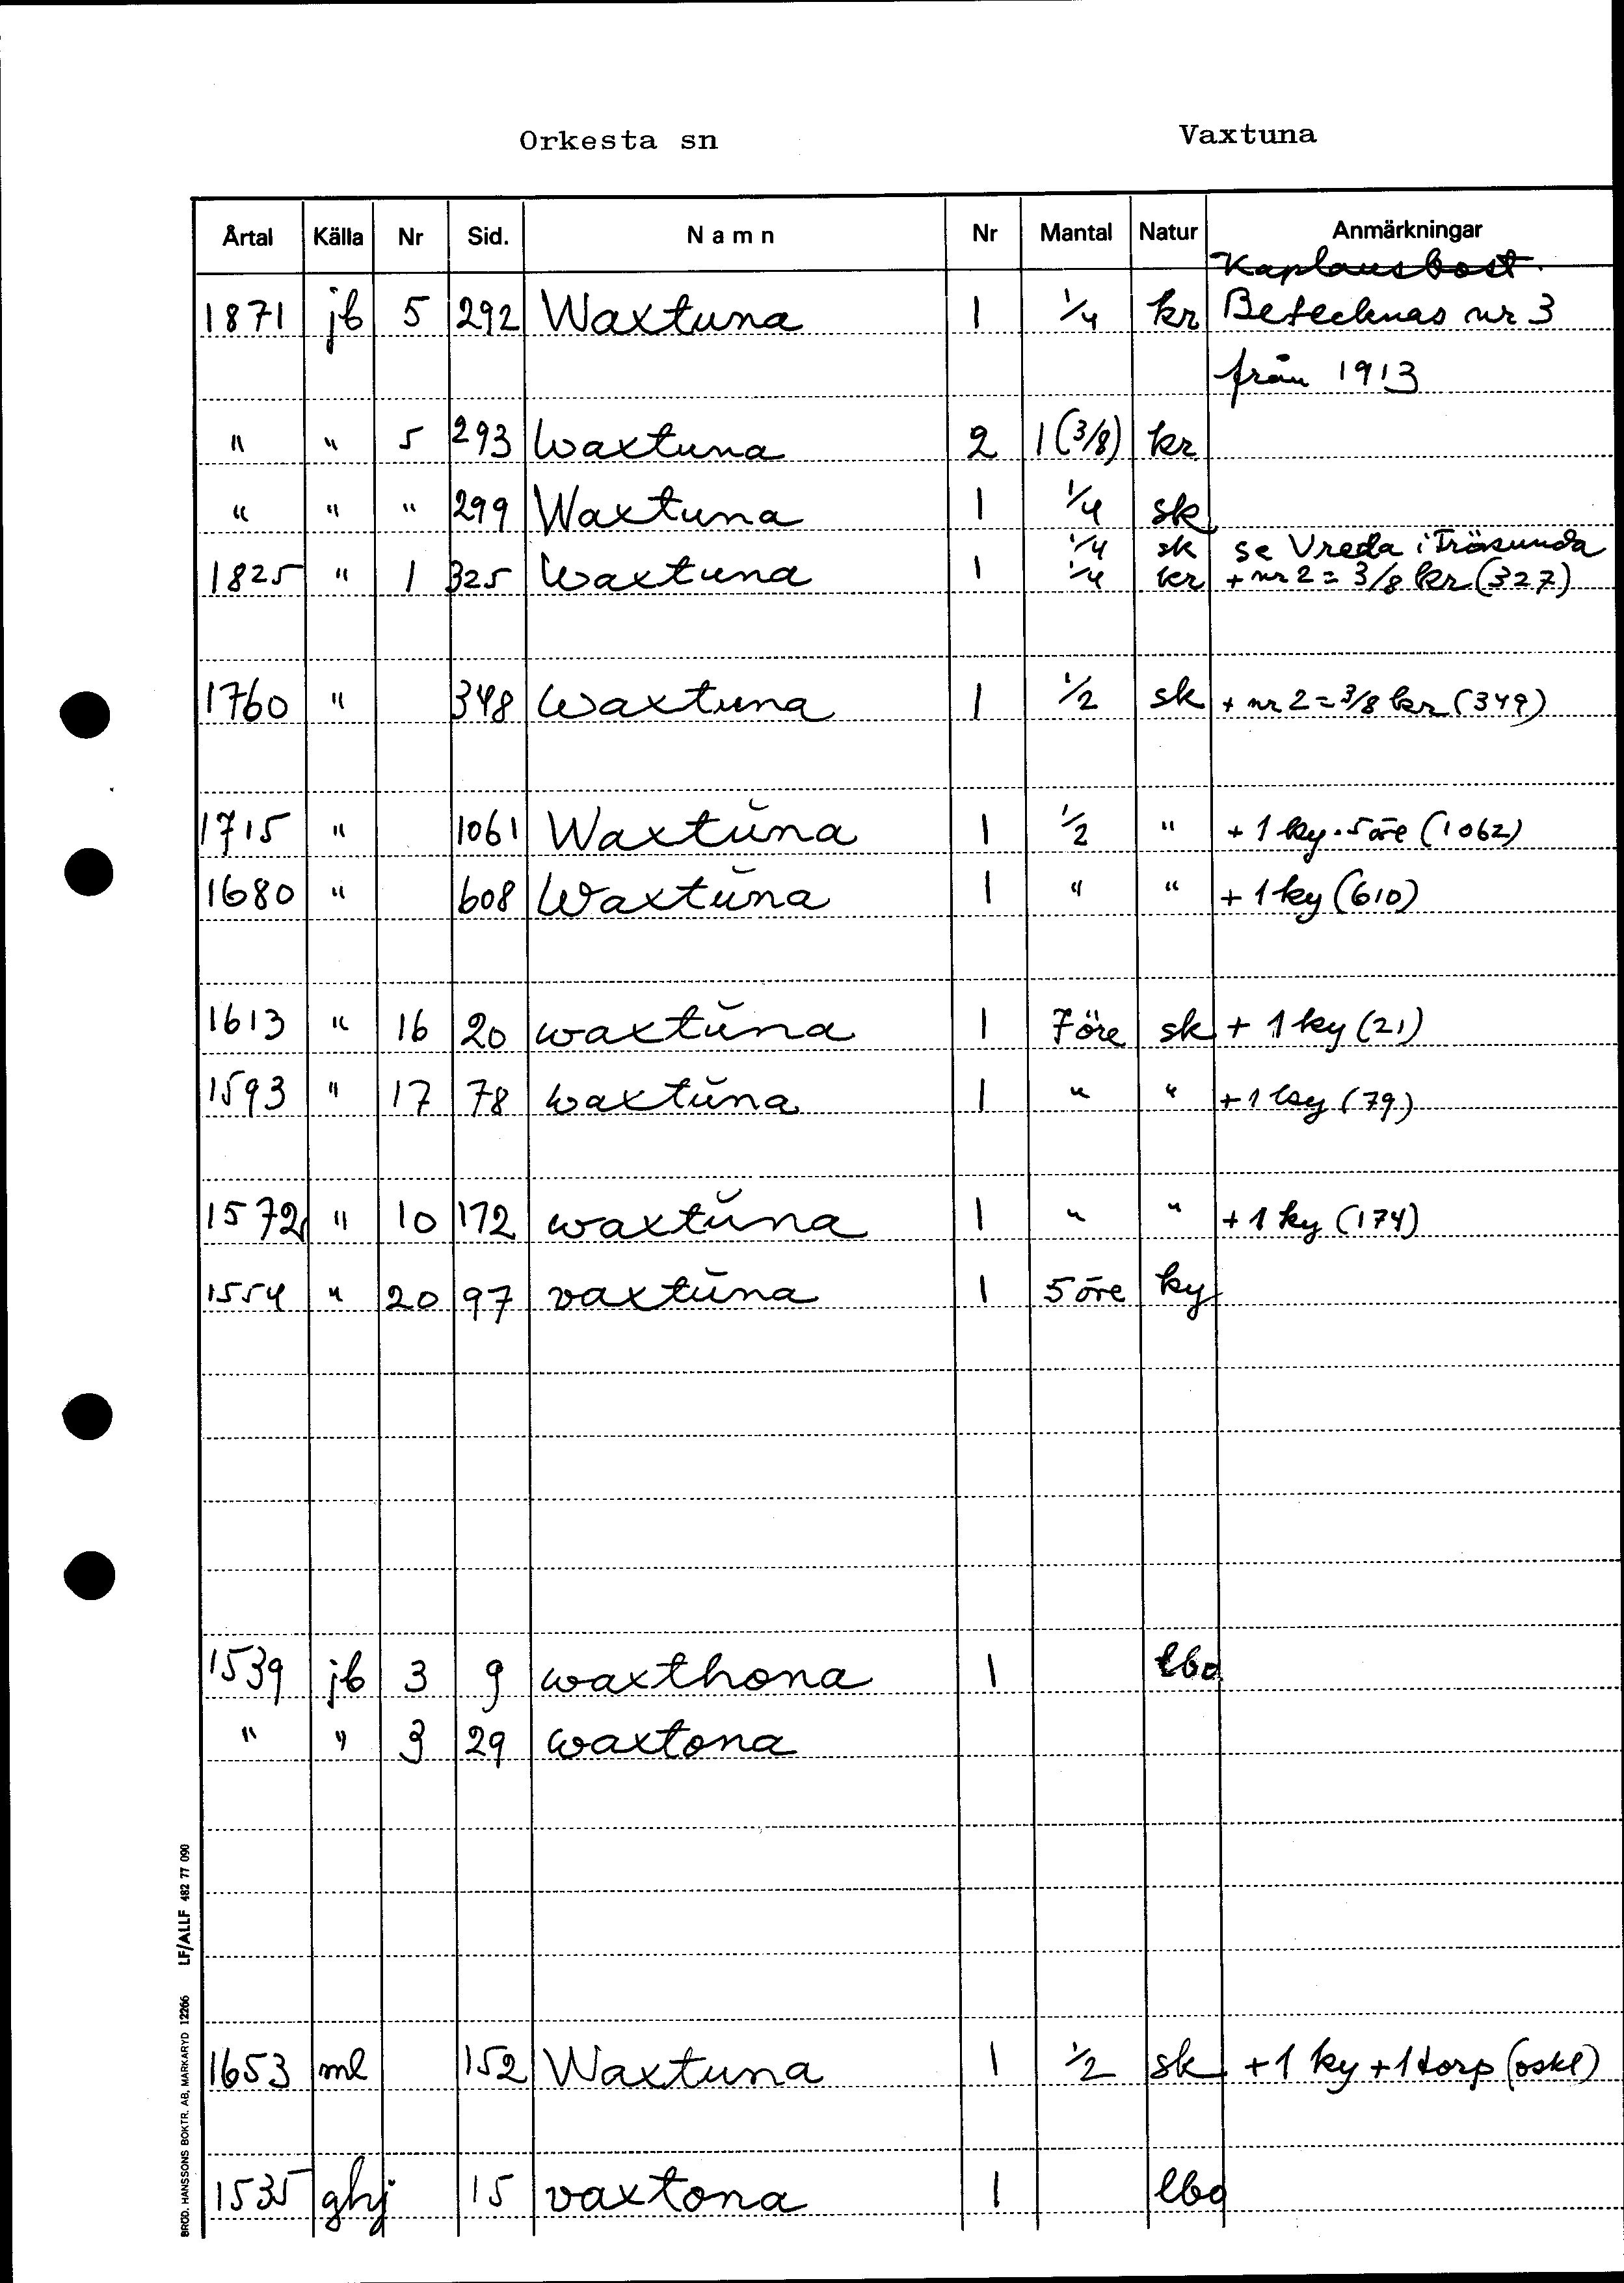 Orkesta sn Vaxtuna
Årtal Källa Nr Sid. Namn Nr Mantal Natur Anmärkningar
Kaplansbost.
1871 jb 5 292 Waxtuna 1 1/4 kr Betecknas nr 3
från 1913
" " 5 293 Waxtuna 2 1 (3/8) kr
" " " 299 Waxtuna 1 1/4 sk
1/4 sk se Vreda i Frösunda
1825 " 1 325 Waxtuna 1 1/4 kr + nr 2 = 3/8 kr (327)
1760 " 348 Waxtuna 1 1/2 sk + nr 2 = 3/8 kr (349)
1715 " 1061 Waxtŭna 1 1/2 " + 1 ky. 5 öre (1062)
1680 " 608 Waxtŭna 1 " " + 1 ky (610)
1613 " 16 20 waxtŭna 1 7 öre sk + 1 ky (21)
1593 " 17 78 waxtŭna 1 " " + 1 ky (79)
1572 " 10 172 waxtŭna 1 " " + 1 ky (174)
1554 " 20 97 vaxtŭna 1 5 öre ky
1539 jb 3 9 waxthona 1 lbo
" " 3 29 waxtona
1653 ml 152 Waxtuna 1 1/2 sk + 1 ky + 1 torp (oskl)
1535 ghj 15 vaxtona 1 lbo
BRÖD. HANSSONS BOKTR. AB, MARKARYD 12266 LF/ALLF 482 77 090